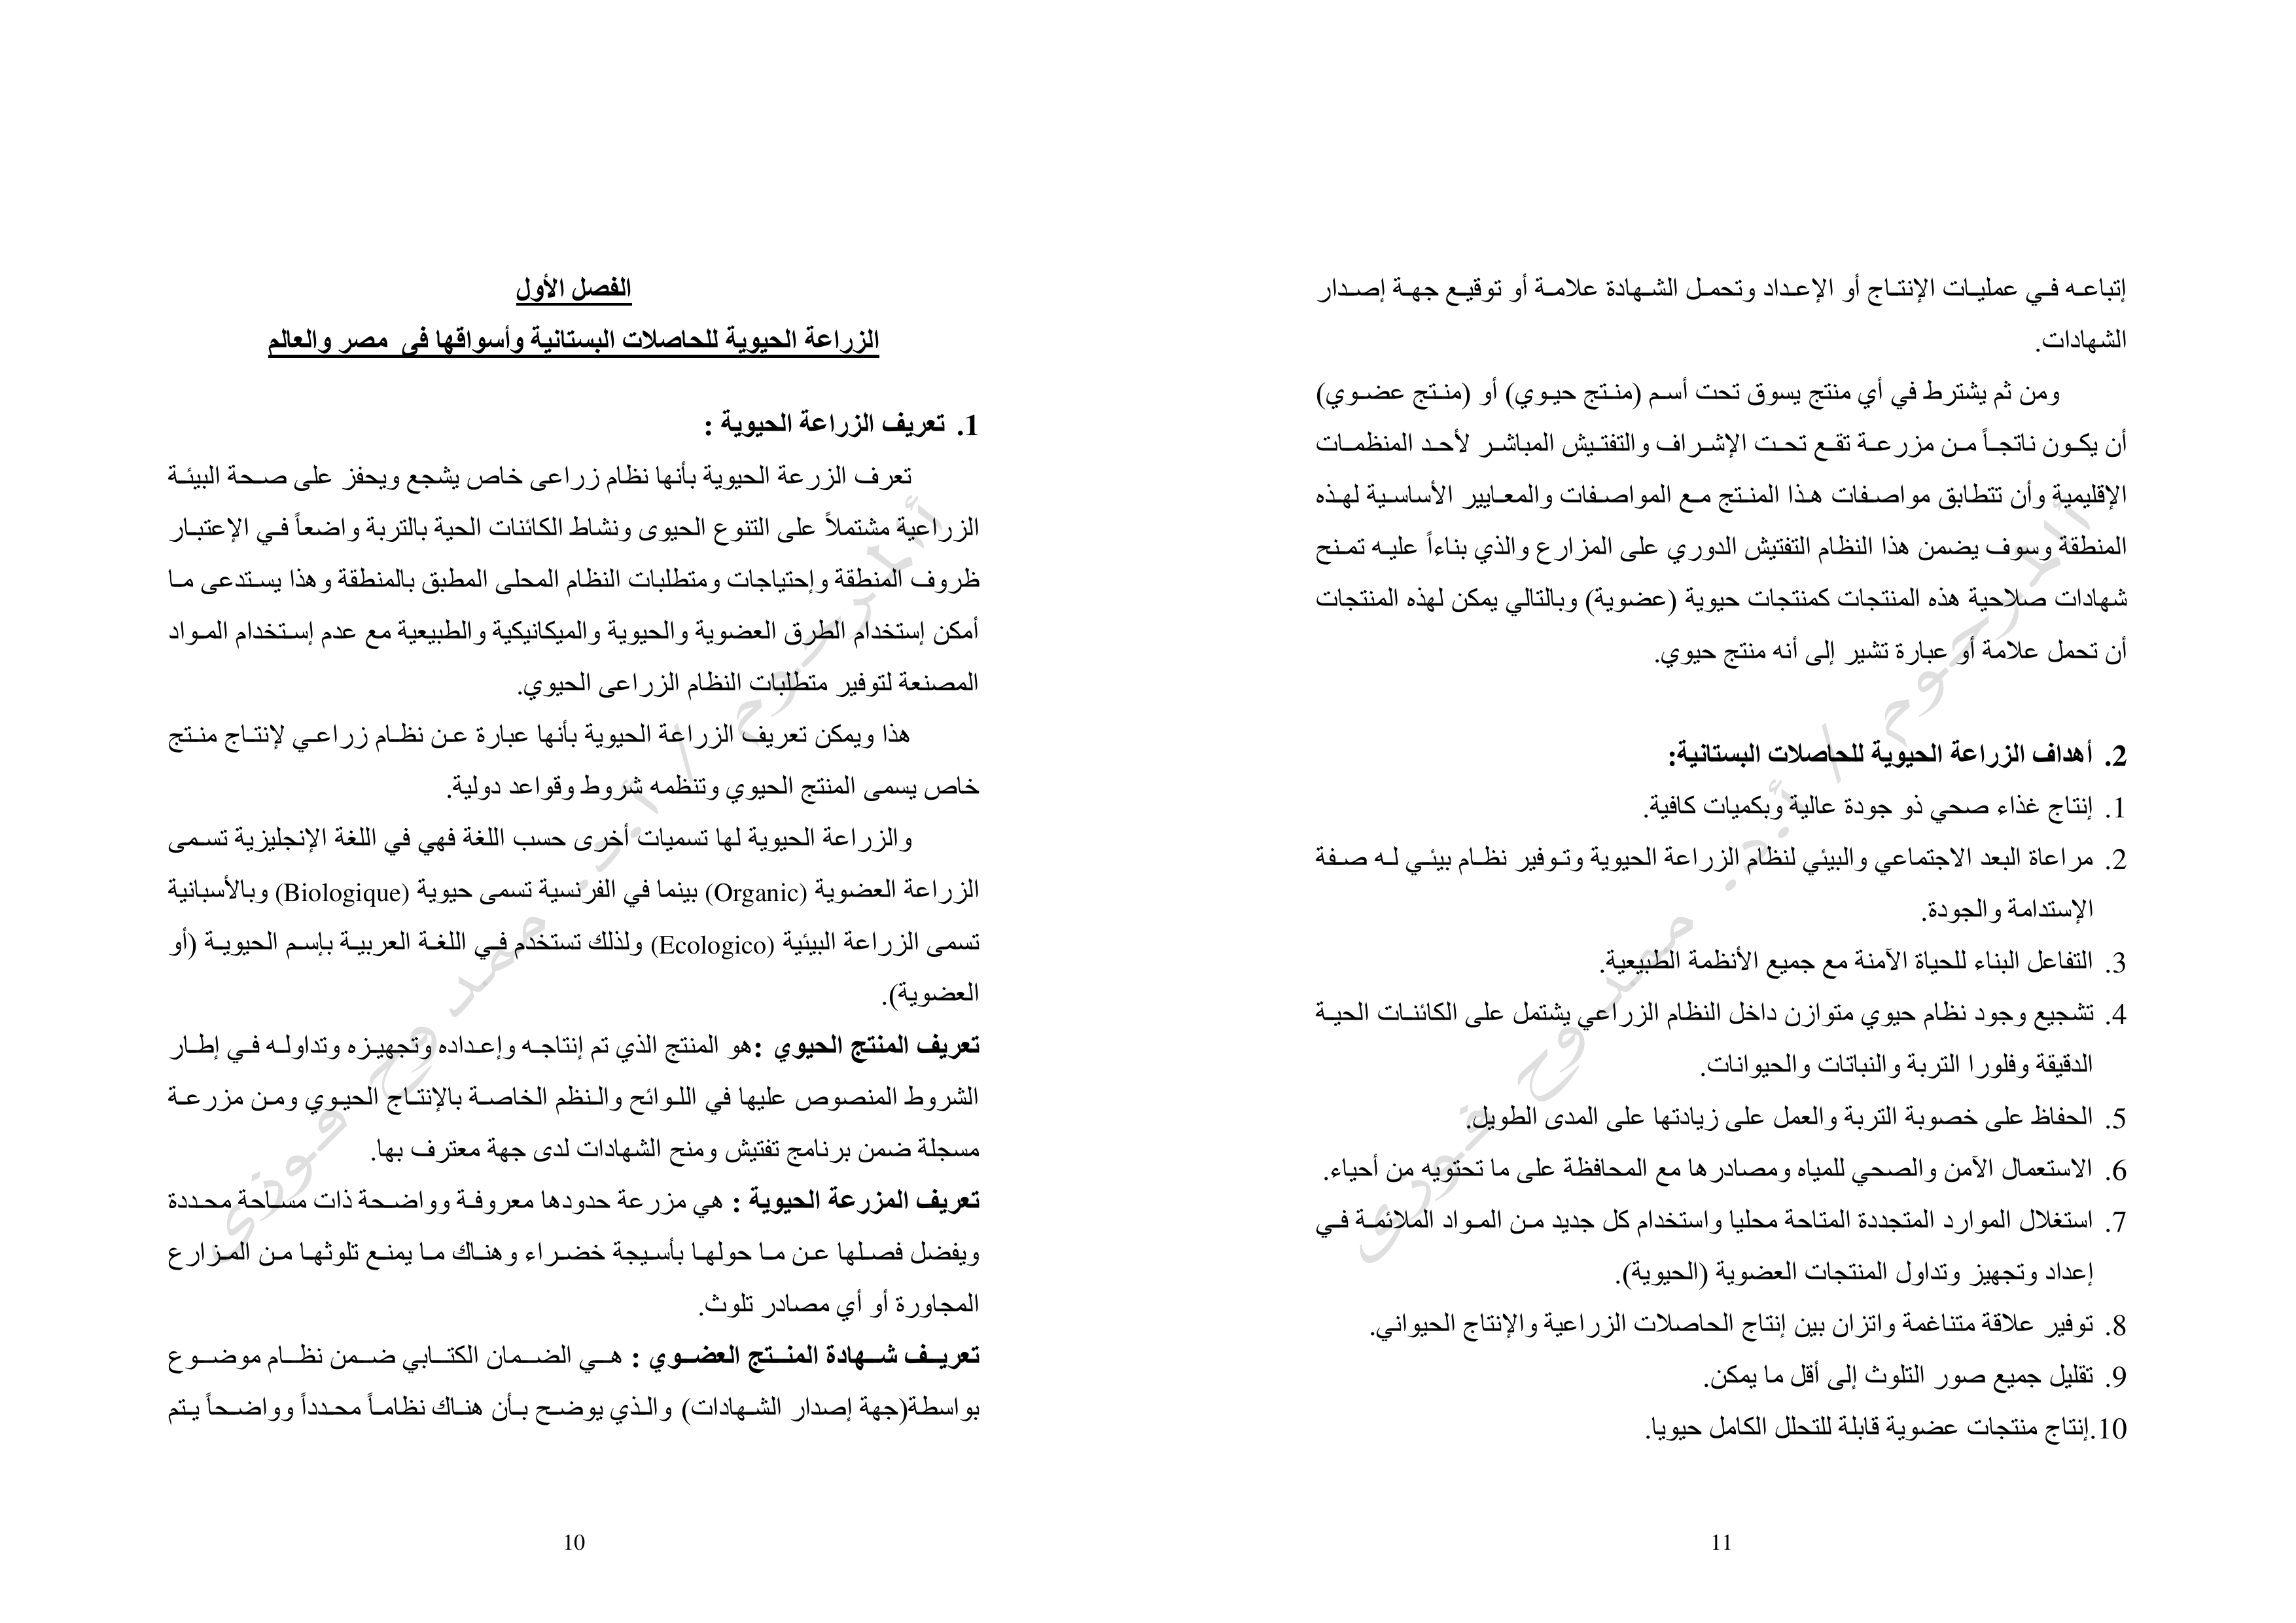 الفصل الأول
الزراعة الحيوية للحاصلات البستانية وأسواقها في مصر والعالم
1. تعريف الزراعة الحيوية :
تعرف الزرعة الحيوية بأنها نظام زراعى خاص يشجع ويحفز على صحة البيئة
الزراعية مشتملاً على التنوع الحيوى ونشاط الكائنات الحية بالتربة واضعاً في الإعتبار
ظروف المنطقة وإحتياجات ومتطلبات النظام المحلى المطبق بالمنطقة وهذا يستدعى ما
أمكن إستخدام الطرق العضوية والحيوية والميكانيكية والطبيعية مع عدم إستخدام المواد
المصنعة لتوفير متطلبات النظام الزراعى الحيوي.
هذا ويمكن تعريف الزراعة الحيوية بأنها عبارة عن نظام زراعي لإنتاج منتج
خاص يسمى المنتج الحيوي وتنظمه شروط وقواعد دولية.
والزراعة الحيوية لها تسميات أخرى حسب اللغة فهي في اللغة الإنجليزية تسمى
الزراعة العضوية (Organic) بينما في الفرنسية تسمى حيوية (Biologique) وبالأسبانية
تسمى الزراعة البيئية (Ecologico) ولذلك تستخدم في اللغة العربية بإسم الحيوية (أو
العضوية).
تعريف المنتج الحيوي :هو المنتج الذي تم إنتاجه وإعداده وتجهيزه وتداوله في إطار
الشروط المنصوص عليها في اللوائح والنظم الخاصة بالإنتاج الحيوي ومن مزرعة
مسجلة ضمن برنامج تفتيش ومنح الشهادات لدى جهة معترف بها.
تعريف المزرعة الحيوية : هي مزرعة حدودها معروفة وواضحة ذات مساحة محددة
ويفضل فصلها عن ما حولها بأسيجة خضراء وهناك ما يمنع تلوثها من المزارع
المجاورة أو أي مصادر تلوث.
تعريف شهادة المنتج العضوي : هي الضمان الكتابي ضمن نظام موضوع
بواسطة(جهة إصدار الشهادات) والذي يوضح بأن هناك نظاماً محدداً وواضحاً يتم
10
إتباعه في عمليات الإنتاج أو الإعداد وتحمل الشهادة علامة أو توقيع جهة إصدار
الشهادات.
ومن ثم يشترط في أي منتج يسوق تحت أسم (منتج حيوي) أو (منتج عضوي)
أن يكون ناتجاً من مزرعة تقع تحت الإشراف والتفتيش المباشر لأحد المنظمات
الإقليمية وأن تتطابق مواصفات هذا المنتج مع المواصفات والمعايير الأساسية لهذه
المنطقة وسوف يضمن هذا النظام التفتيش الدوري على المزارع والذي بناءاً عليه تمنح
شهادات صلاحية هذه المنتجات كمنتجات حيوية (عضوية) وبالتالي يمكن لهذه المنتجات
أن تحمل علامة أو عبارة تشير إلى أنه منتج حيوي.
2. أهداف الزراعة الحيوية للحاصلات البستانية:
1. إنتاج غذاء صحي ذو جودة عالية وبكميات كافية.
2. مراعاة البعد الاجتماعي والبيئي لنظام الزراعة الحيوية وتوفير نظام بيئي له صفة
الإستدامة والجودة.
3. التفاعل البناء للحياة الآمنة مع جميع الأنظمة الطبيعية.
4. تشجيع وجود نظام حيوي متوازن داخل النظام الزراعي يشتمل على الكائنات الحية
الدقيقة وفلورا التربة والنباتات والحيوانات.
5. الحفاظ على خصوبة التربة والعمل على زيادتها على المدى الطويل.
6. الاستعمال الآمن والصحي للمياه ومصادرها مع المحافظة على ما تحتويه من أحياء.
7. استغلال الموارد المتجددة المتاحة محليا واستخدام كل جديد من المواد الملائمة في
إعداد وتجهيز وتداول المنتجات العضوية (الحيوية).
8. توفير علاقة متناغمة واتزان بين إنتاج الحاصلات الزراعية والإنتاج الحيواني.
9. تقليل جميع صور التلوث إلى أقل ما يمكن.
10.إنتاج منتجات عضوية قابلة للتحلل الكامل حيويا.
11